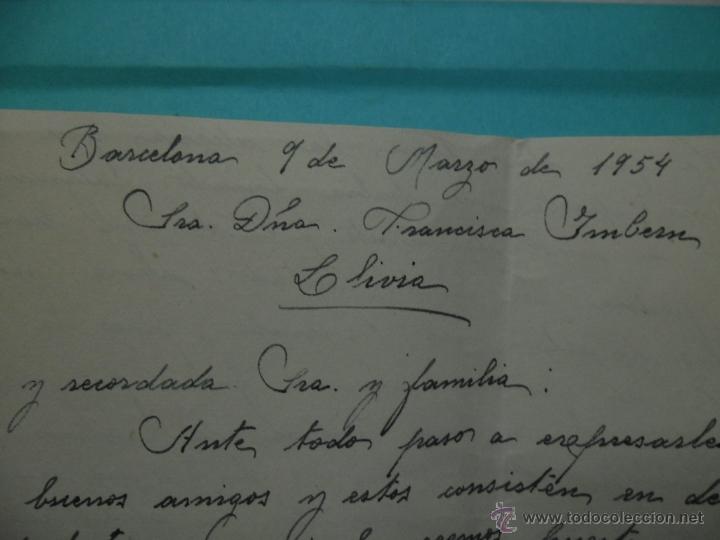 Barcelona 9 de Marzo de 1954
Sra. Dña. Francisca Imbern
Llivia
y recordada Sra. y familia:
Ante todo paso a expresarle
buenos amigos y estos consistén en de
todocoleccion
www.todocoleccion.net